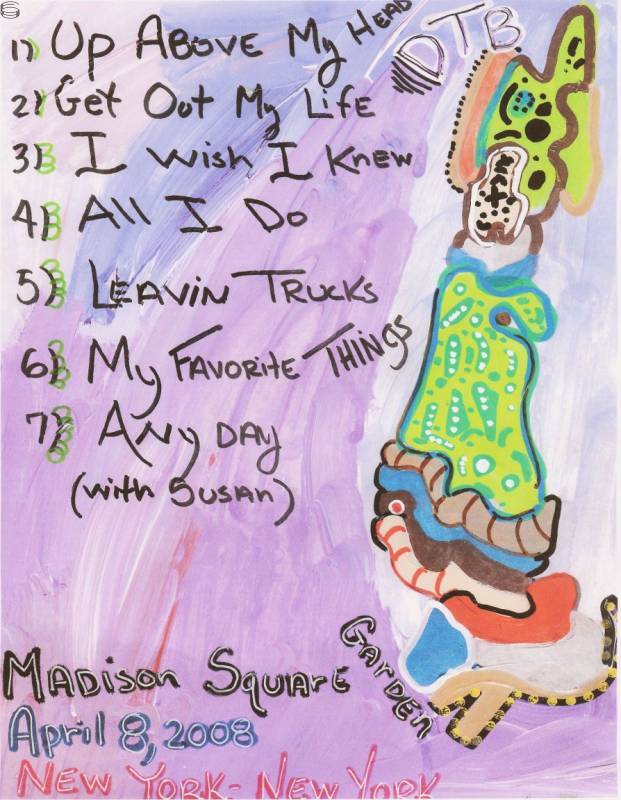 DTB
1) Up Above My Head
2) Get Out My Life
3) I Wish I Knew
4) All I Do
5) Leavin Trucks
6) My Favorite Things
7) Any Day
(with Susan)
Madison Square Garden
April 8, 2008
New York - New York